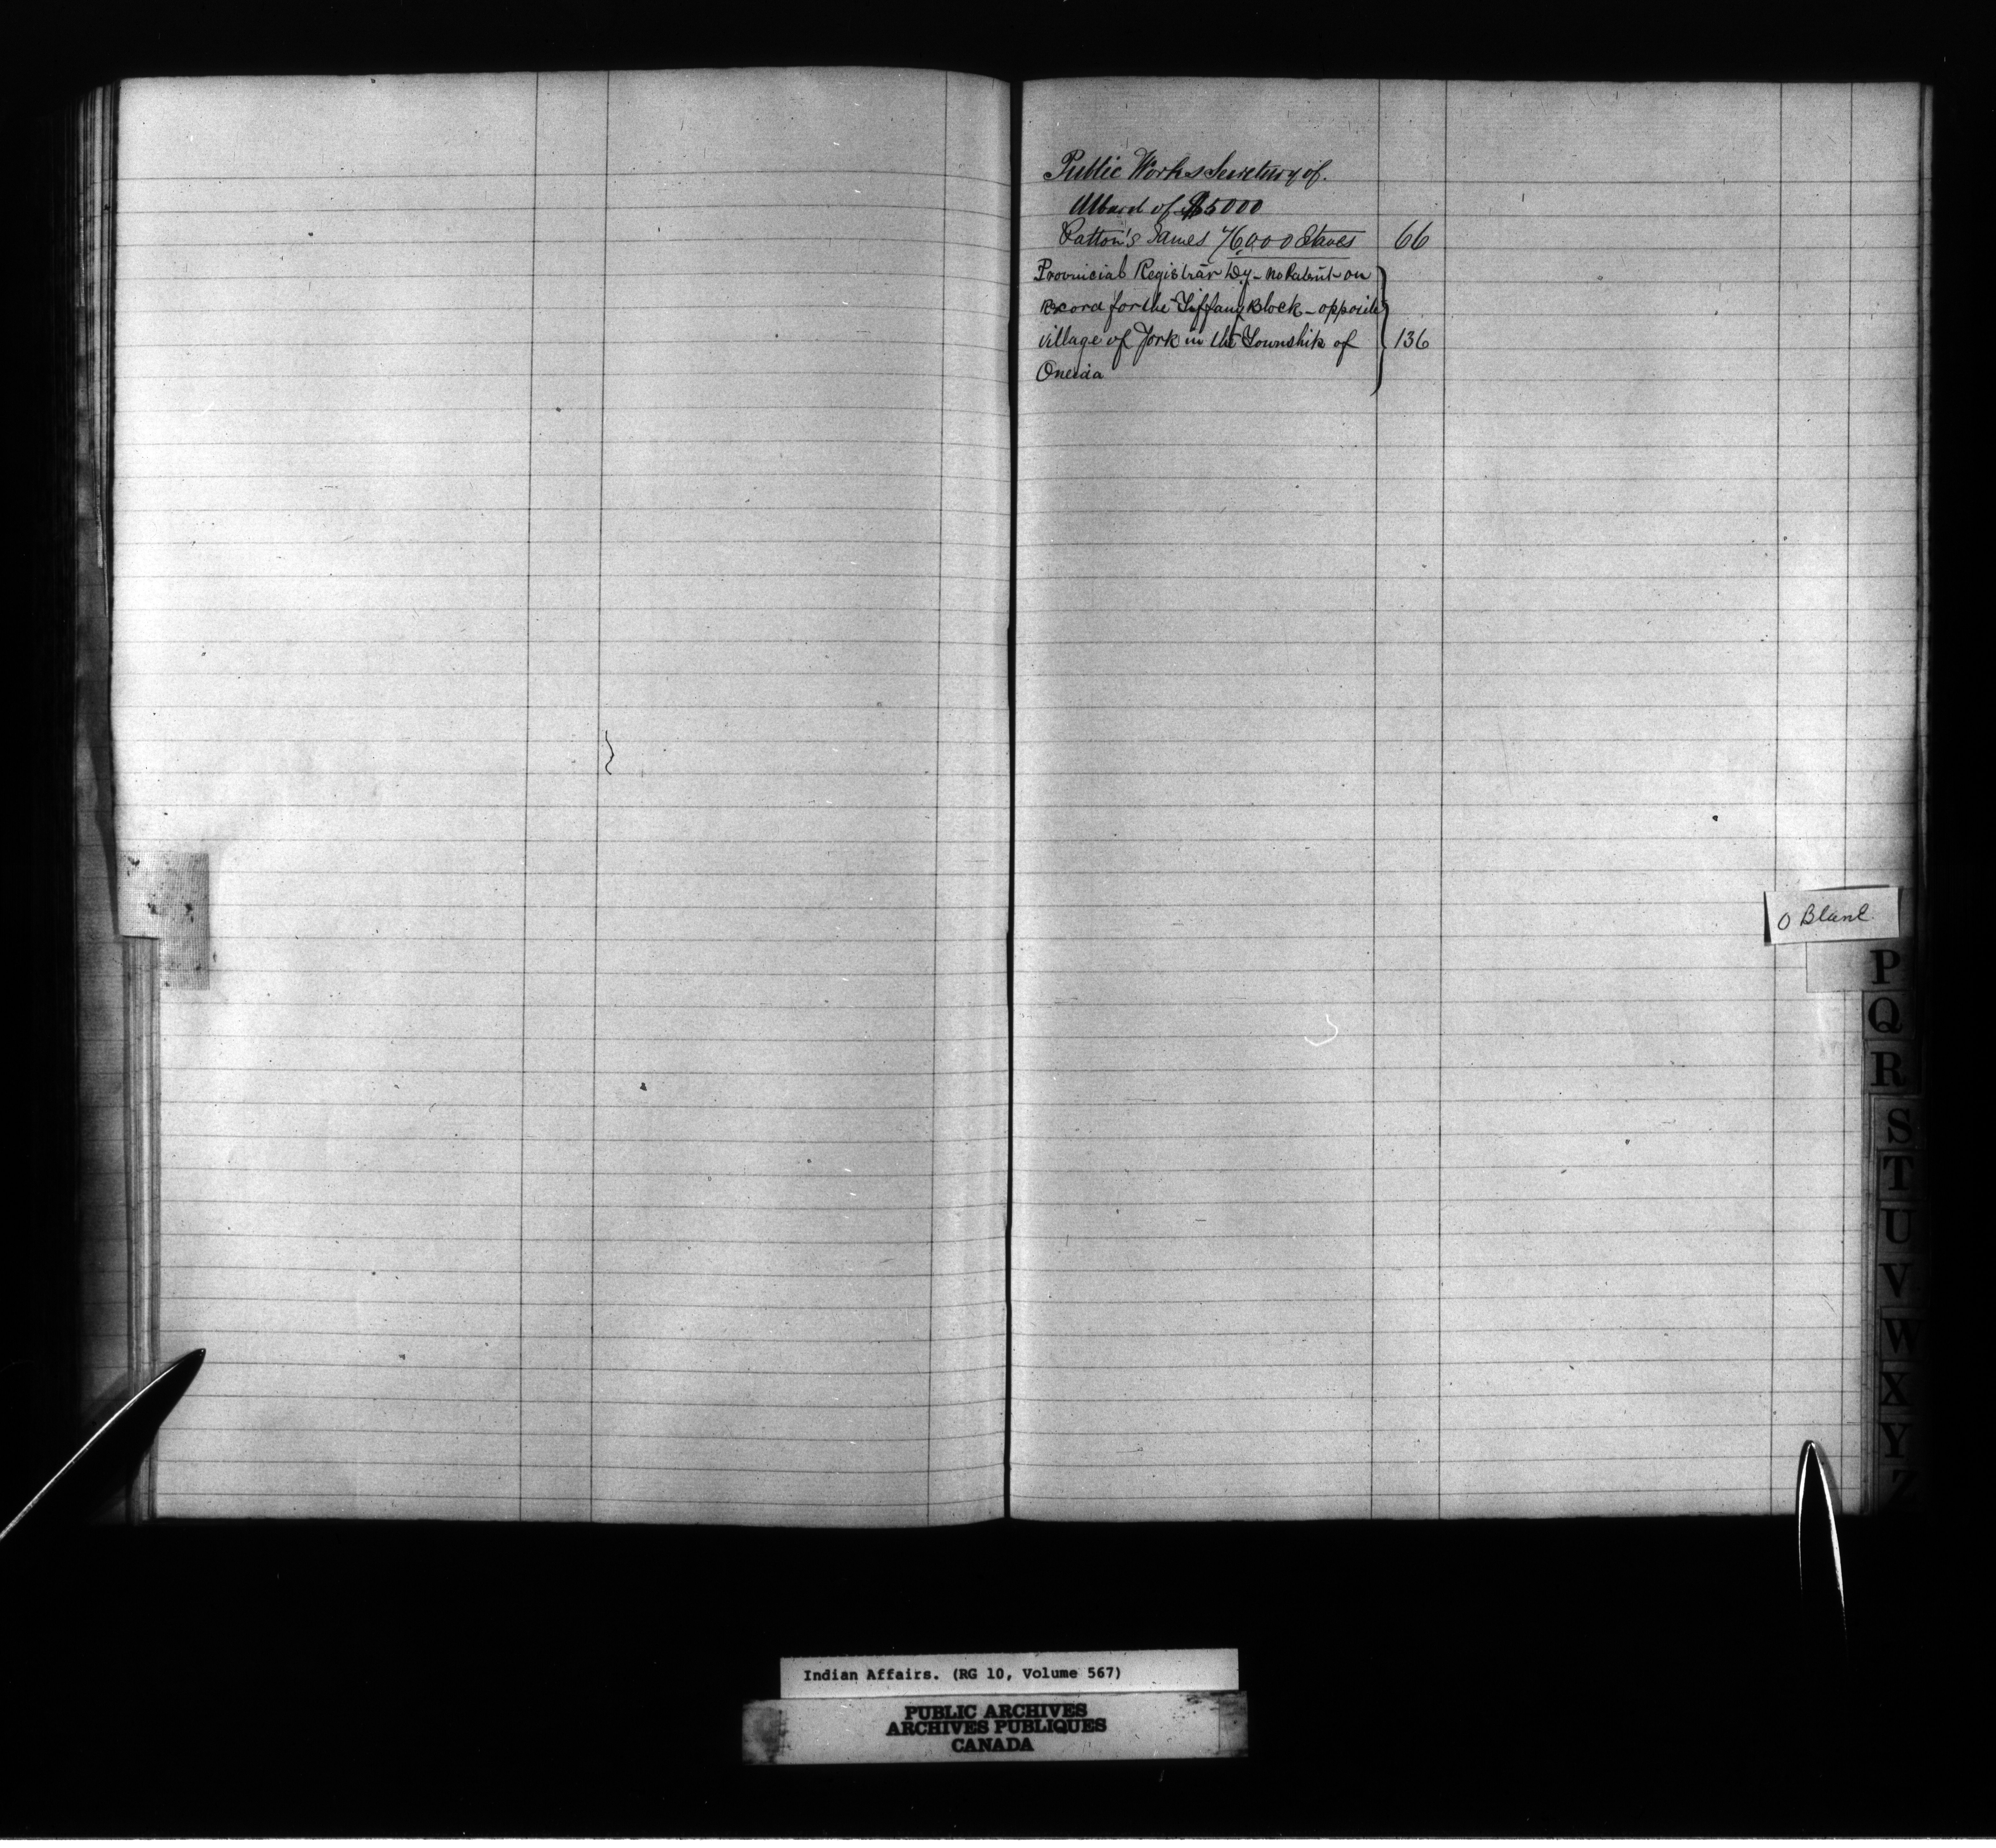 Public Works Secretary of.
Award of $5000
Patton's James 76000 Staves 66
Provincial Registrar Dy - no Patent on
record for the Tiffany Block - opposite
village of York in the Township of 136
Oneida
O Blank
P
Q
R
S
T
U
V
W
X
Y
Z
Indian Affairs. (RG 10, Volume 567)
PUBLIC ARCHIVES
ARCHIVES PUBLIQUES
CANADA